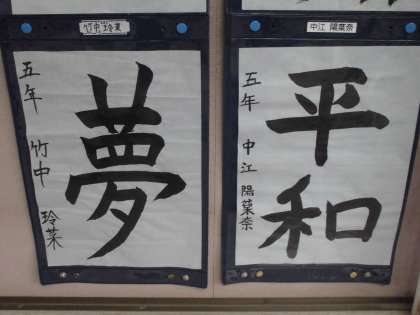 竹中 玲菜
夢
五年 竹中 玲菜
中江 陽葉奈
平和
五年 中江 陽葉奈